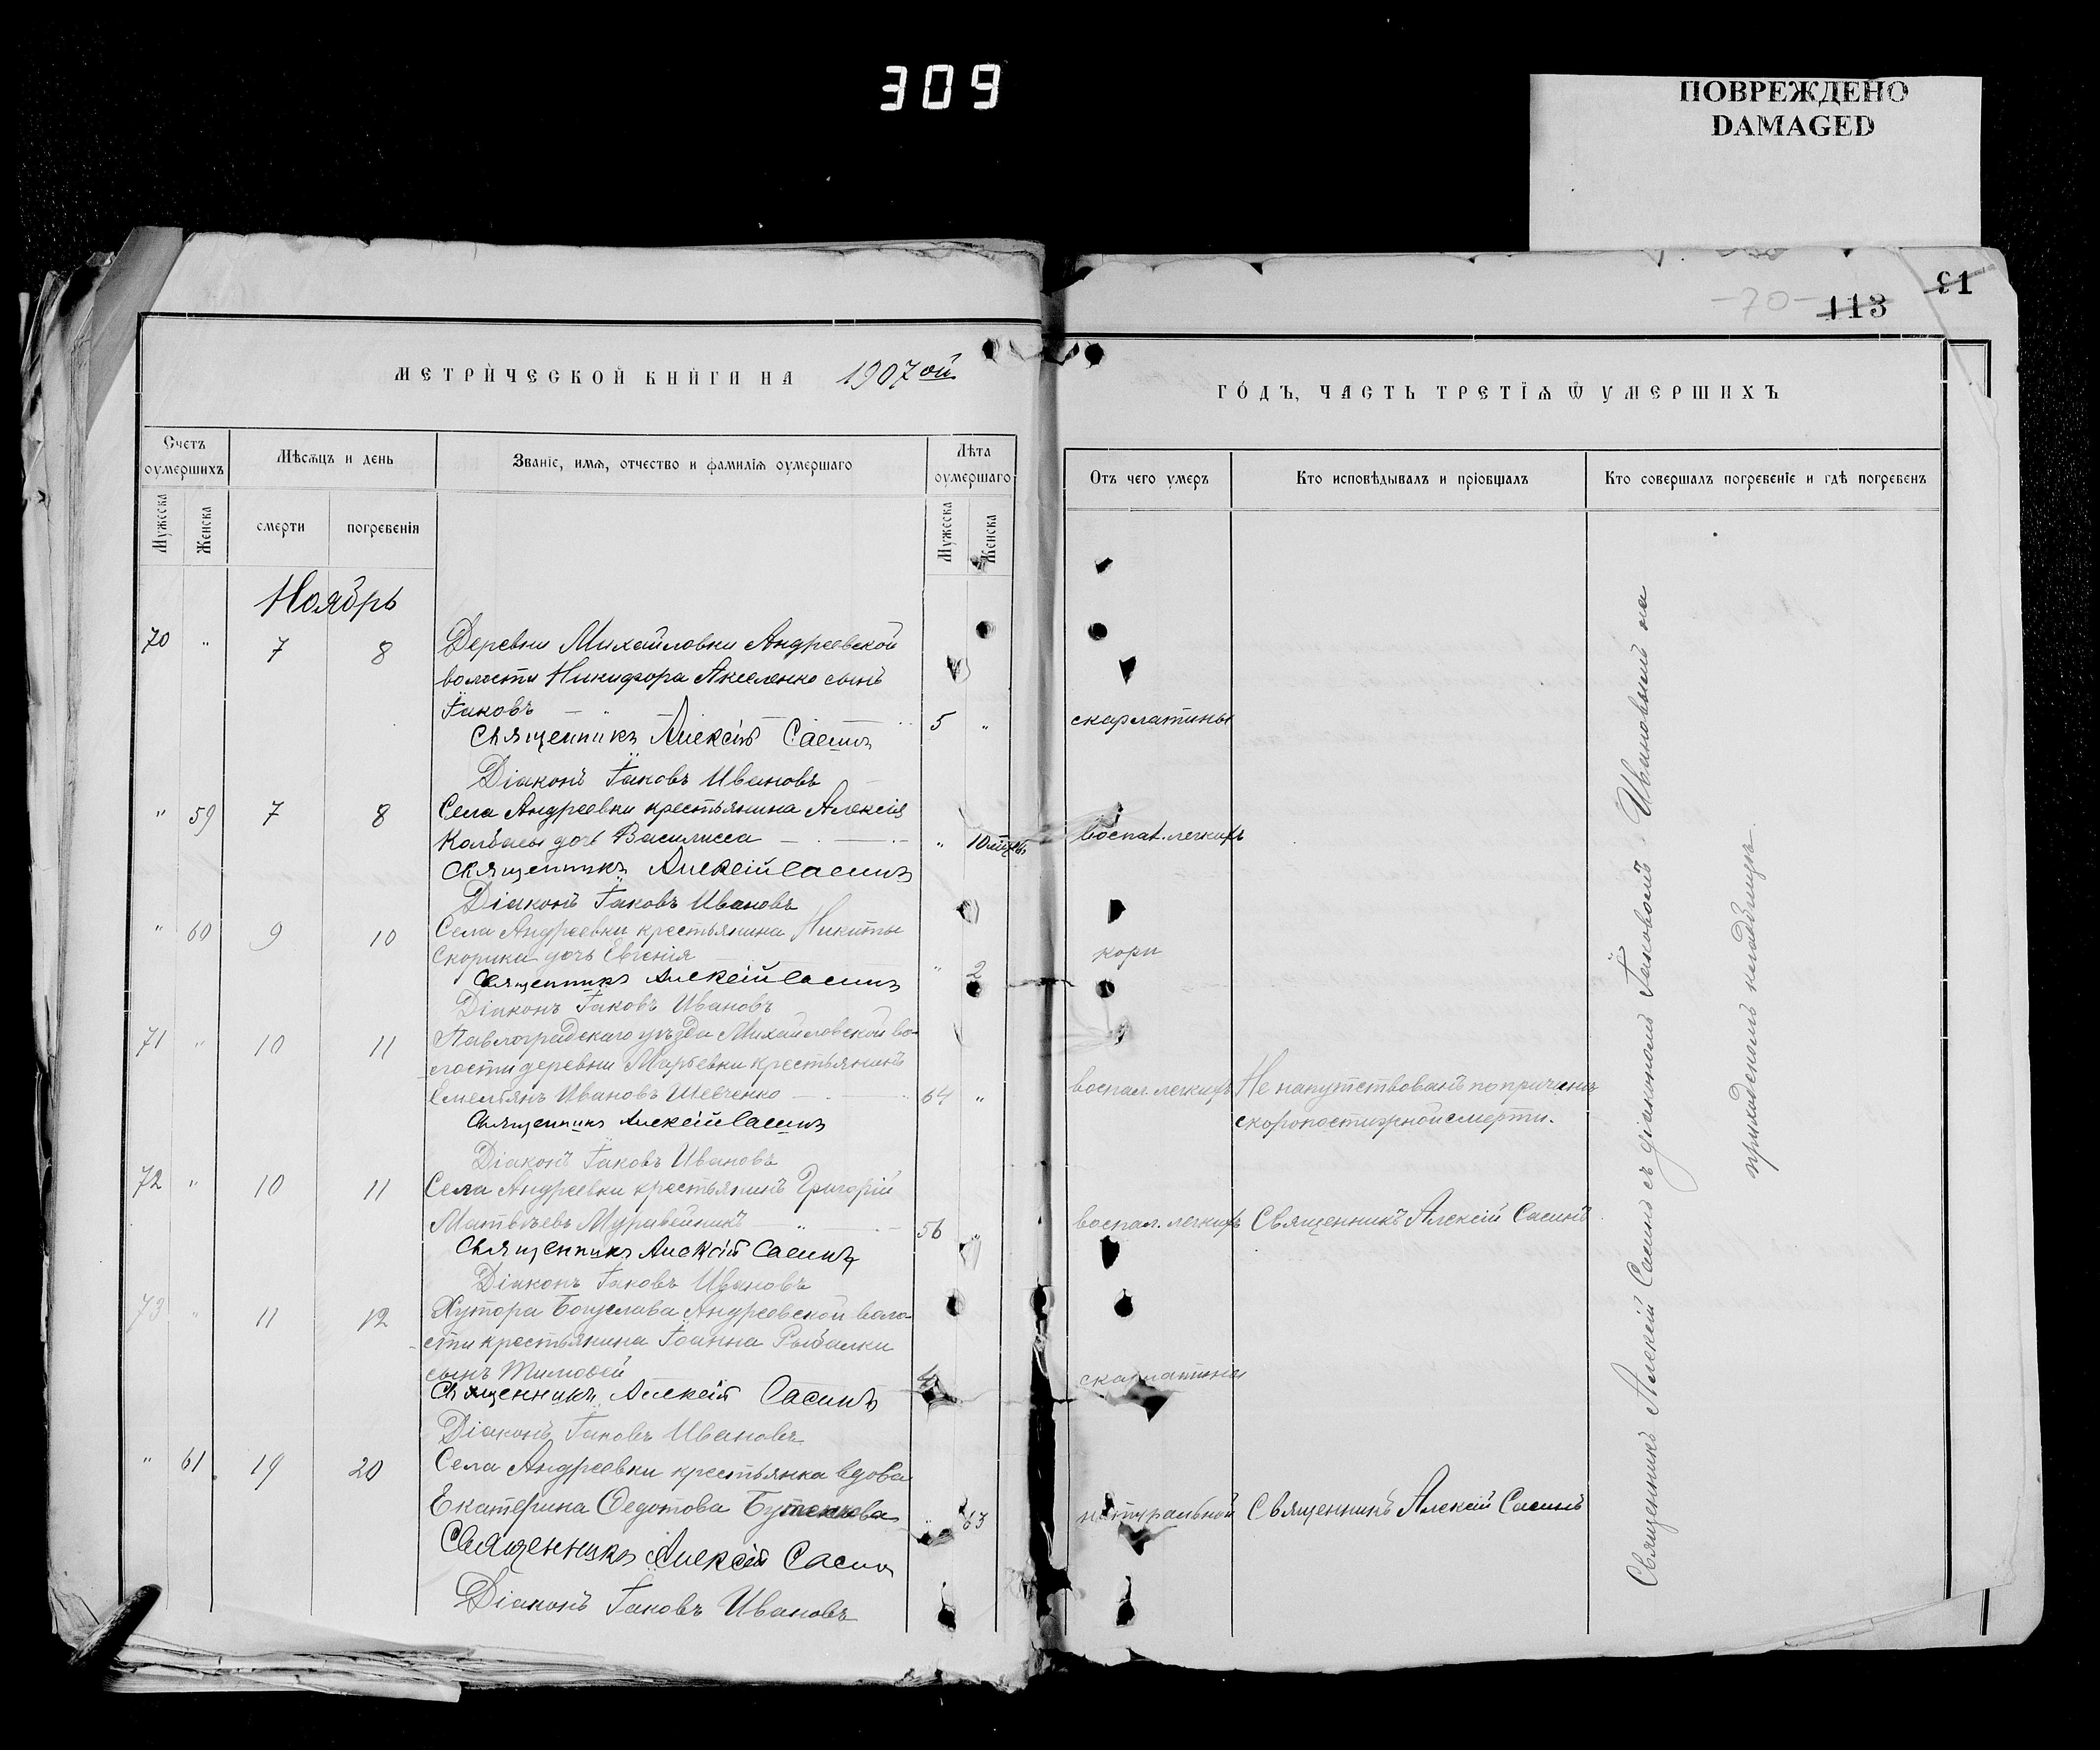 309
ПОВРЕЖДЕНО
DAMAGED
91
-70- 113
МЕТРИЧЕСКОЙ КНИГИ НА 1907ой
ГОДЪ, ЧАСТЬ ТРЕТІѦ Ѿ УМЕРШИХЪ
Счетъ оумершихъ
Мѣсѧцъ и день
Званіе, имѧ, отчество и фамиліѧ оумершаго
Лѣта оумершаго
Отъ чего умеръ
Кто исповѣдывалъ и пріобщалъ
Кто совершалъ погребеніе и гдѣ погребенъ
Мужеска
Женска
смерти
погребенія
Мужеска
Женска
Ноябрь
70 " 7 8 Деревни Михайловки Андреевской
волости Никифора Акселенко сынъ
Іаковъ 5 " скарлатины
Священникъ Алексій Сасинъ
Діаконъ Іаковъ Ивановъ
" 59 7 8 Села Андреевки крестьянина Алексія
Колбасы дочь Василисса " 10 мѣсец. воспал. легкихъ
Священникъ Алексій Сасинъ
Діаконъ Іаковъ Ивановъ
" 60 9 10 Села Андреевки крестьянина Никиты
Скорика дочь Евгенія " 2 кори
Священникъ Алексій Сасинъ
Діаконъ Іаковъ Ивановъ
71 " 10 11 Павлоградскаго уѣзда Михайловской во-
лости деревни Марьевки крестьянинъ
Емельянъ Ивановъ Шевченко 64 " воспал. легкихъ Не напутствованъ по причинѣ
скоропостижной смерти.
Священникъ Алексій Сасинъ
Діаконъ Іаковъ Ивановъ
72 " 10 11 Села Андреевки крестьянинъ Григорій
Матвѣевъ Муравейникъ 56 " воспал. легкихъ Священникъ Алексій Сасинъ
Священникъ Алексій Сасинъ
Діаконъ Іаковъ Ивановъ
73 " 11 12 Хутора Богуслава Андреевской воло-
сти крестьянина Іоанна Рыбалки
сынъ Тимоѳей 4 скарлатины
Священникъ Алексій Сасинъ
Діаконъ Іаковъ Ивановъ
" 61 19 20 Села Андреевки крестьянка вдова
Екатерина Ѳедотова Бутенкова " 63 натуральной Священникъ Алексій Сасинъ
Священникъ Алексій Сасинъ
Діаконъ Іаковъ Ивановъ
Священникъ Алексій Сасинъ съ діакономъ Іаковомъ Ивановымъ на
приходскомъ кладбищѣ